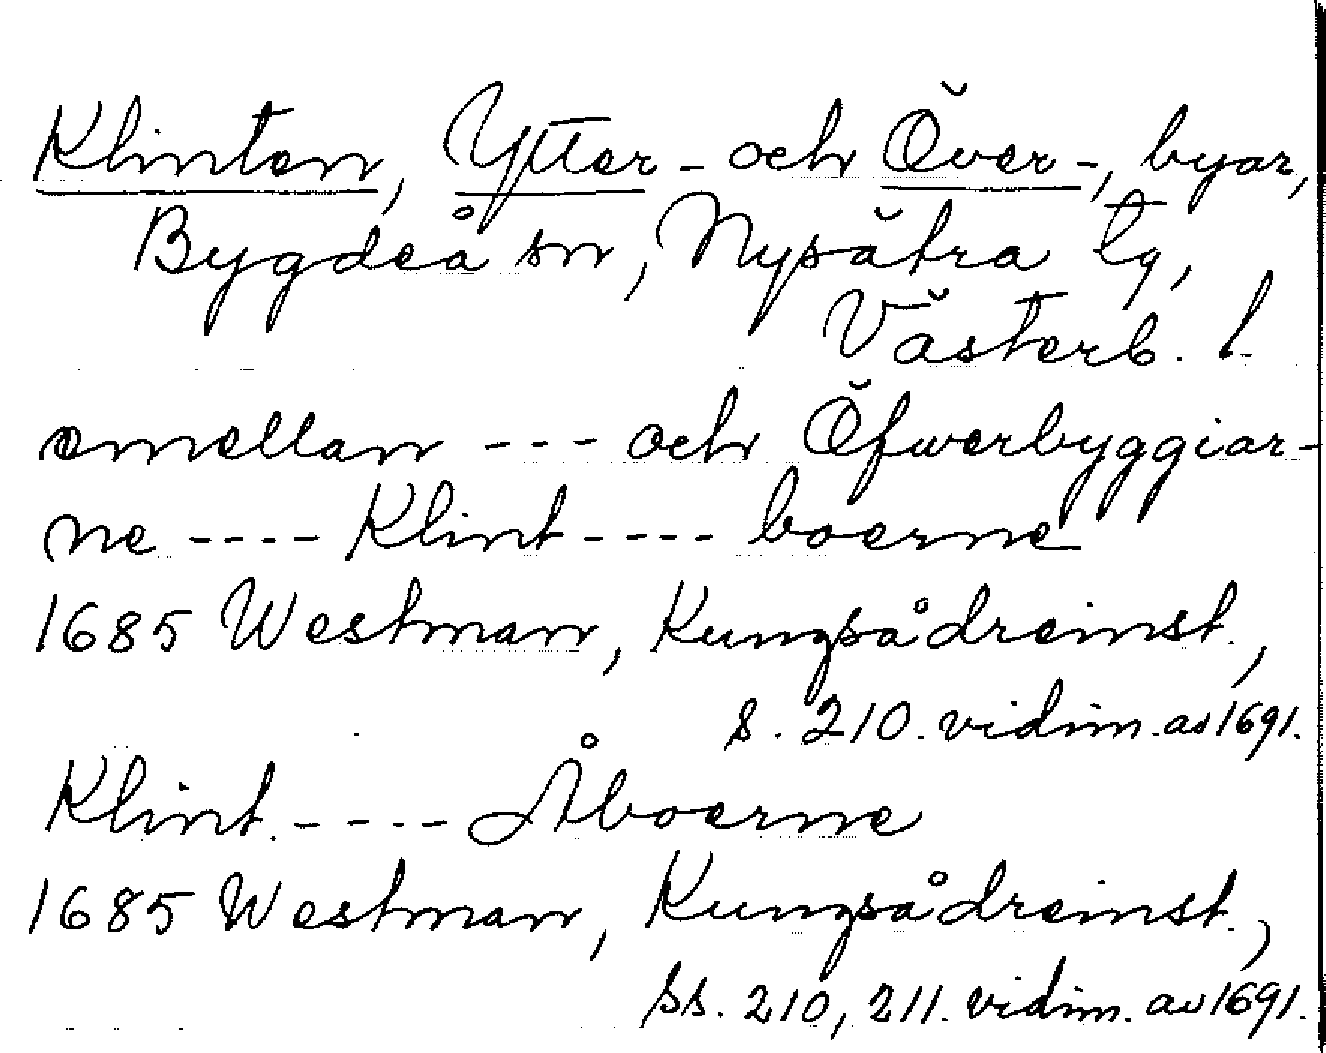 Klinten, Ytter- och Över-, byar,
Bygdeå sn, Nysätra tg,
Västerb. l.
emellan --- och Öfwerbyggiar-
ne ---- Klint ---- boerne
1685 Westman, Kungsådreinst.,
s. 210. vidim. av 1691.
Klint. ---- Åboerne
1685 Westman, Kungsådreinst.,
ss. 210, 211. vidim. av 1691.